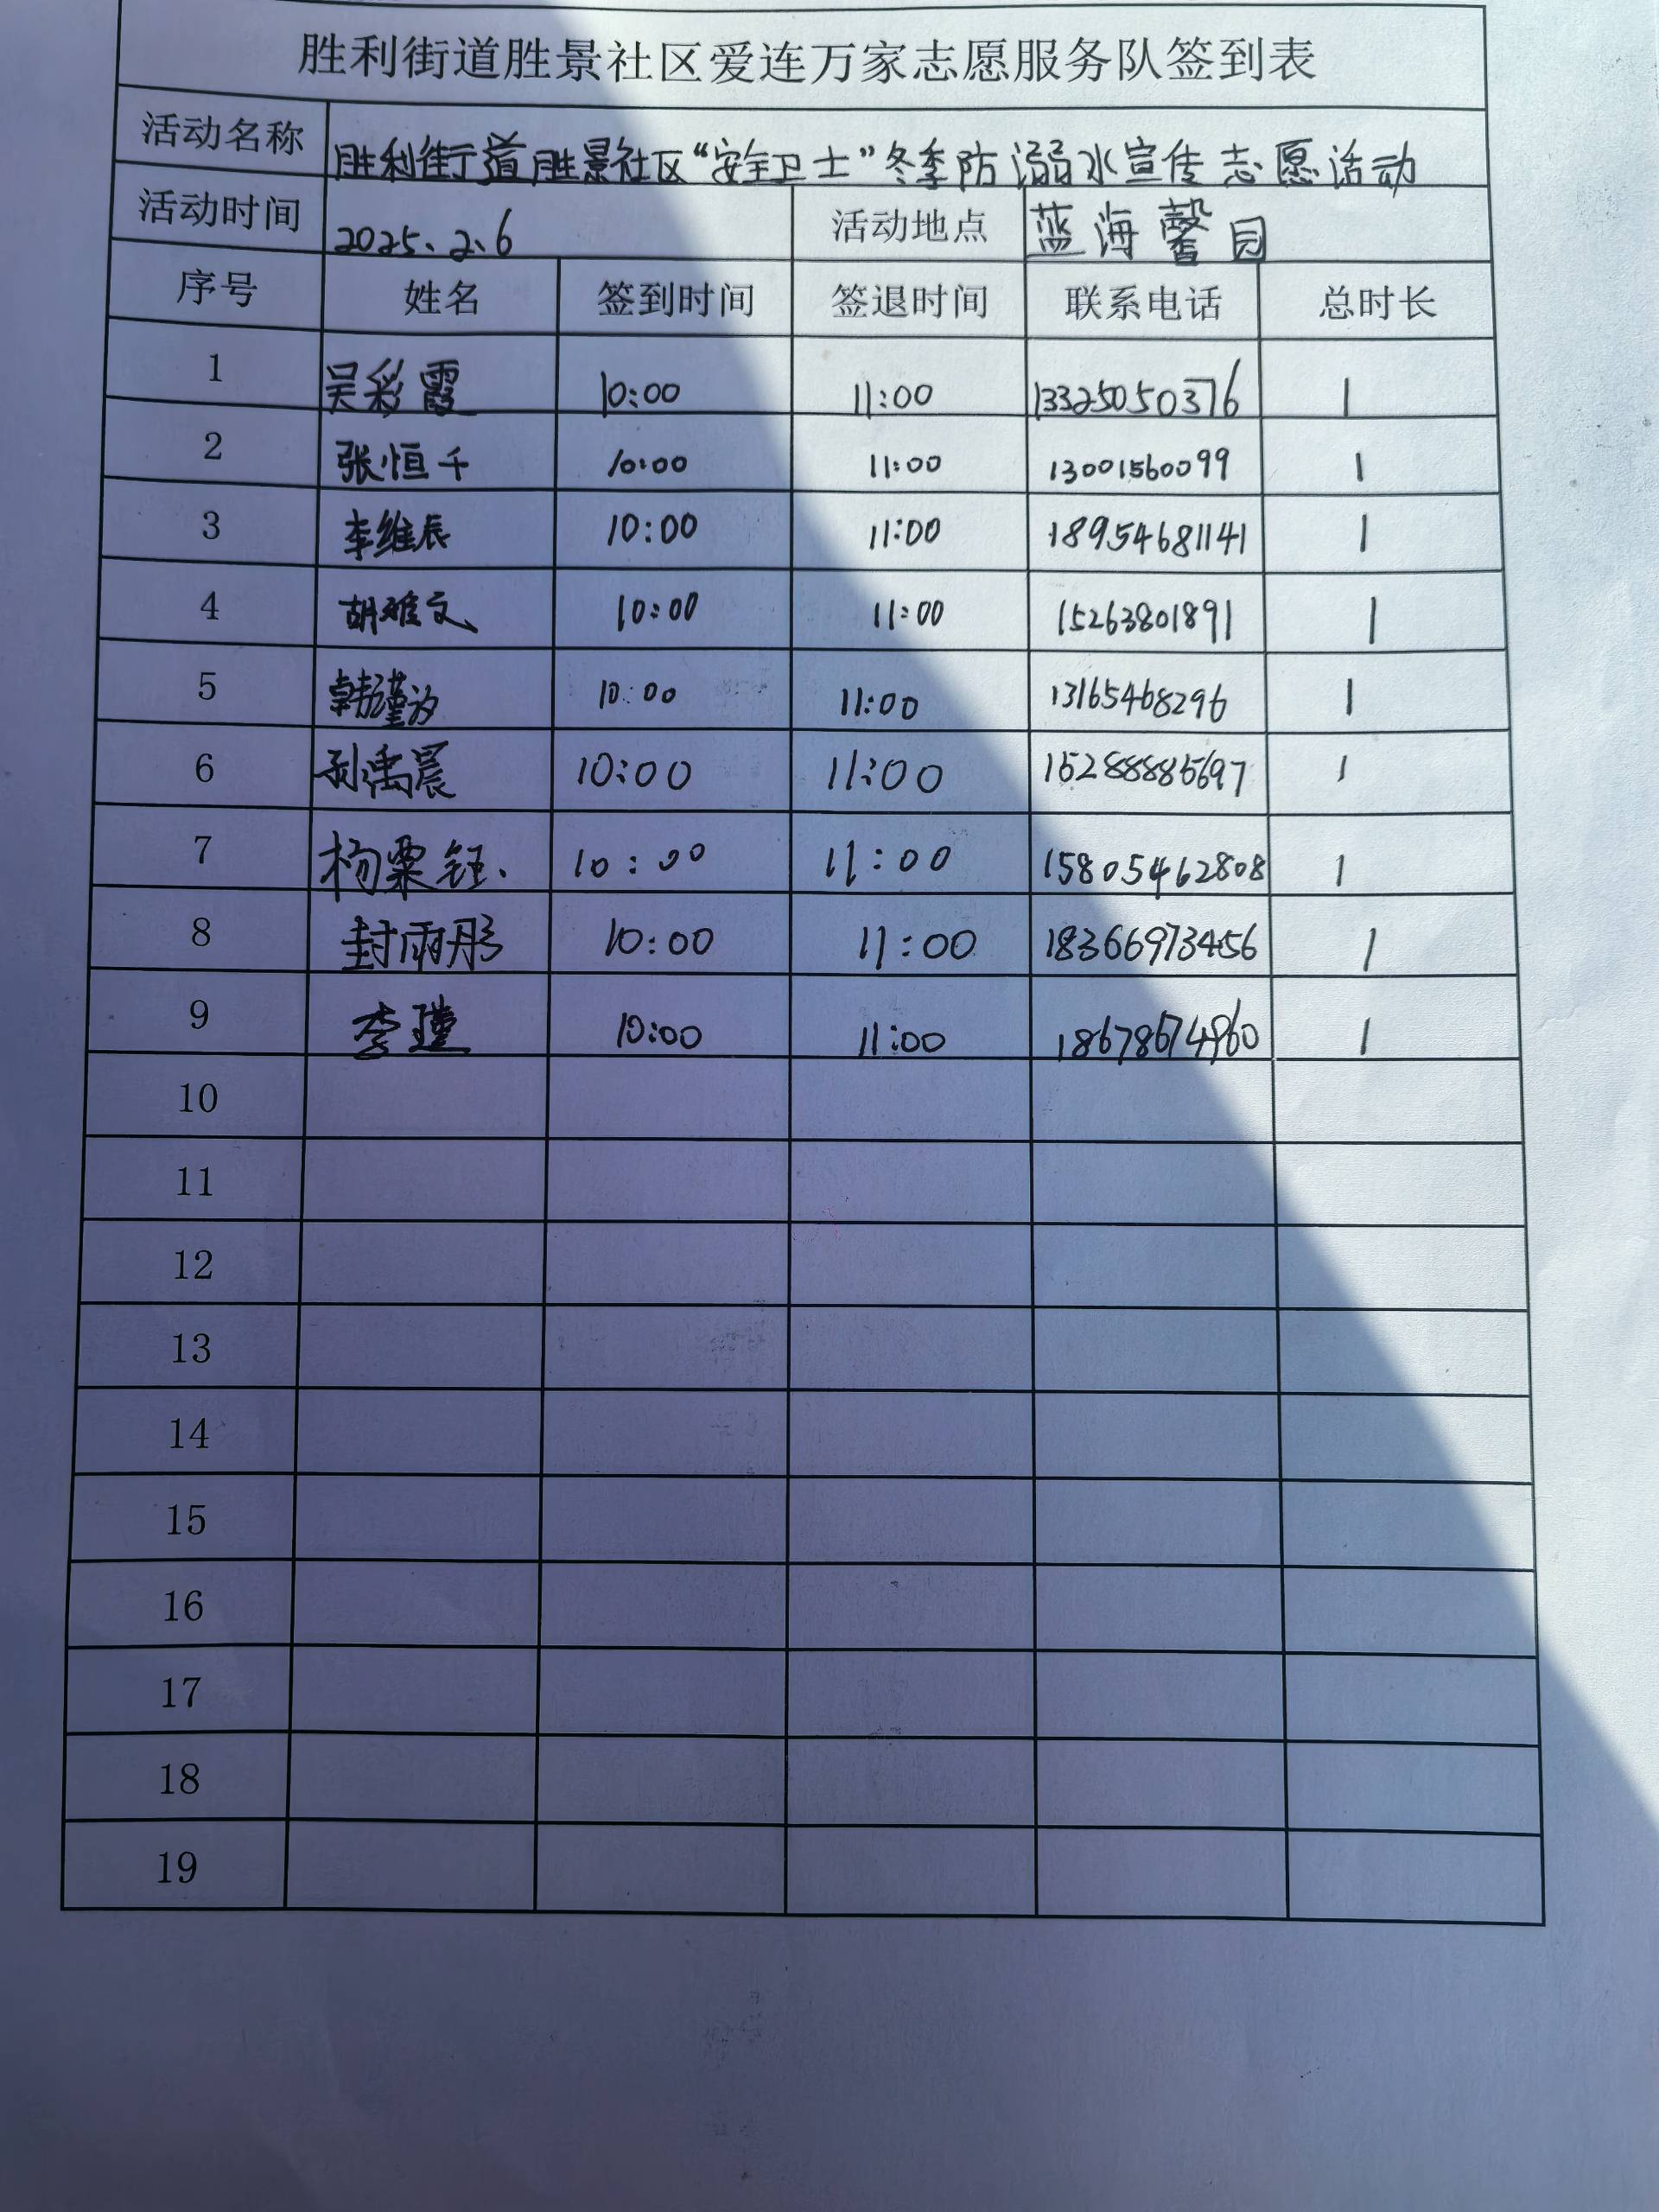 胜利街道胜景社区爱连万家志愿服务队签到表
活动名称 胜利街道胜景社区“安全卫士”冬季防溺水宣传志愿活动
活动时间 2025.2.6 活动地点 蓝海馨园
序号 姓名 签到时间 签退时间 联系电话 总时长
1 吴彩霞 10:00 11:00 13325050376 1
2 张恒千 10:00 11:00 13001560099 1
3 李维辰 10:00 11:00 18954681141 1
4 胡雅文 10:00 11:00 15263801891 1
5 韩谨 10:00 11:00 13165468296 1
6 孙禹晨 10:00 11:00 15288885697 1
7 杨粟钰 10:00 11:00 15805462808 1
8 封雨彤 10:00 11:00 18366973456 1
9 李瑾 10:00 11:00 18678674960 1
10
11
12
13
14
15
16
17
18
19